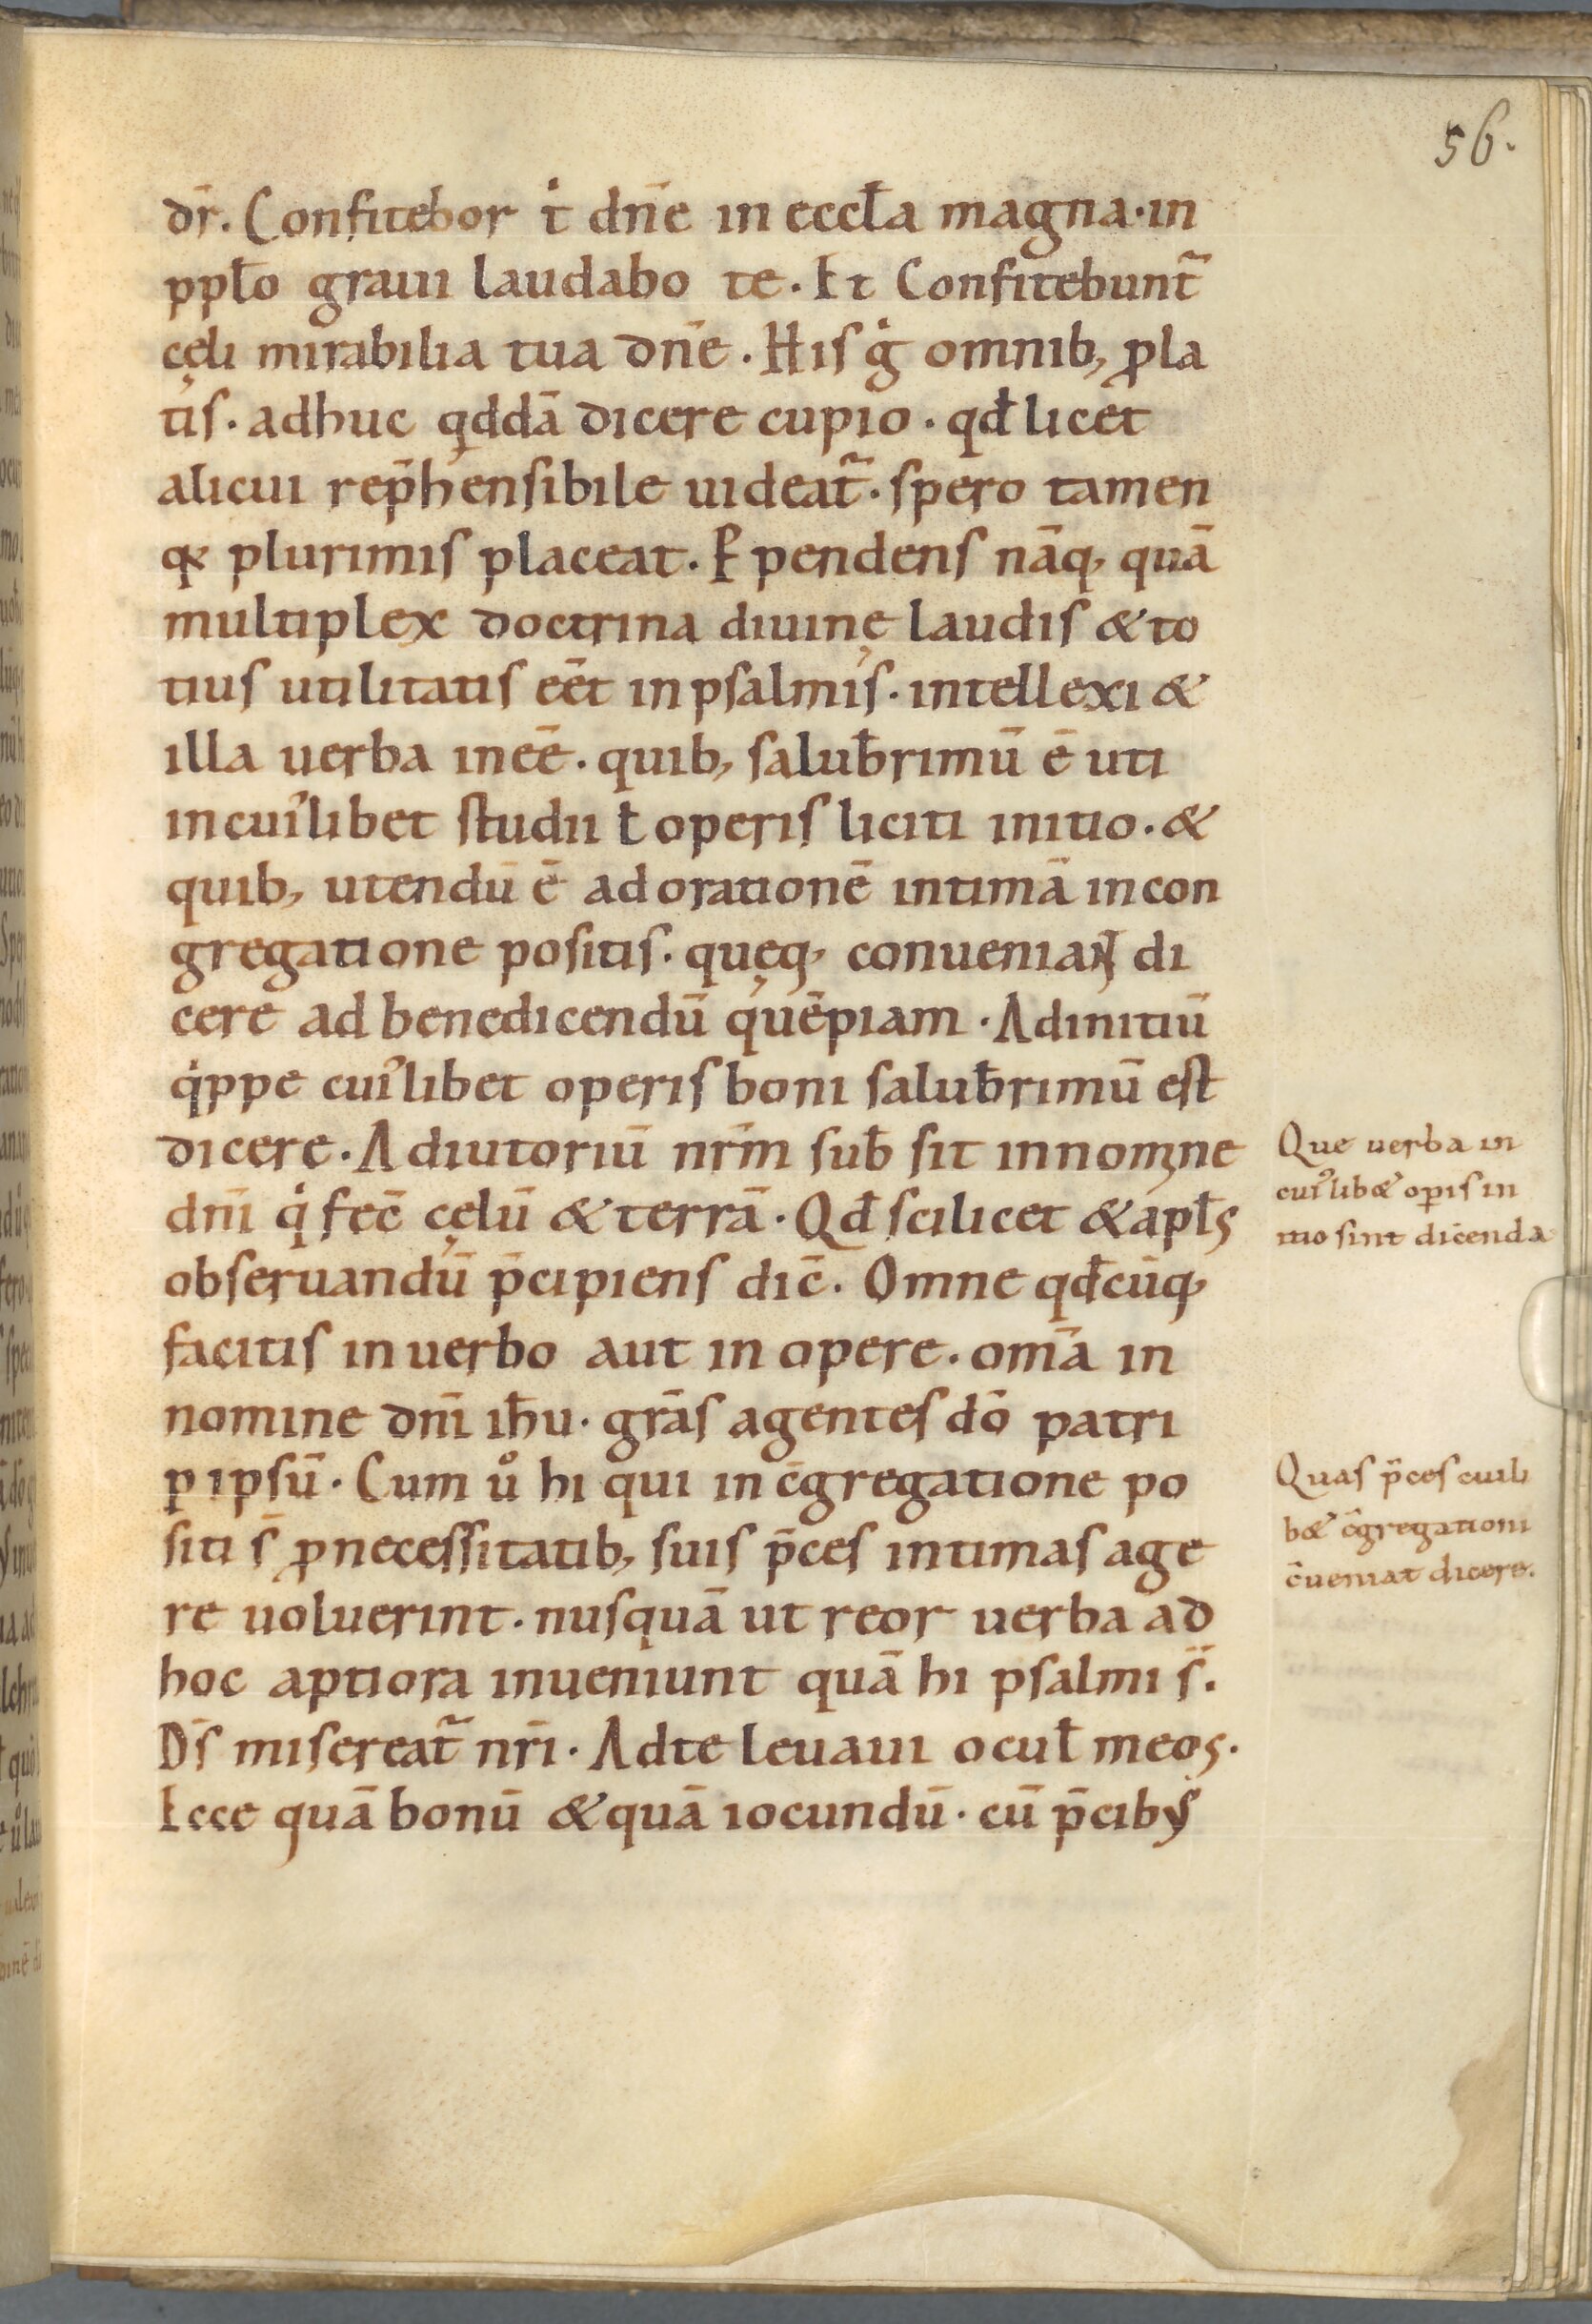 56.
dr̄. Confitebor ṫ dn̄e in eccƚa magna· in
ppƚo graui laudabo te. Et Confitebunt᷒
cęli mirabilia tua dn̄e. His g̊ omnib; ꝓla
tis. adhuc qddā dicere cupio. qđ licet
alicui rep̄hensibile uideat᷒. spero tamen
qꝫ plurimis placeat. Eppendens nāq; quā
multiplex doctrina diuinę laudis & to
tius utilitatis eēt in psalmis. intellexi &
illa uerba ineē. quib; saluƀrimū ē uti
in cui᷒libet studii ƚ operis liciti initio. &
quib; utendū ē ad orationē intimā in con
gregatione positis. quęq; conueniant di
cere ad benedicendū quēpiam. Ad initiū
qͥppe cui᷒libet operis boni saluƀrimū est
dicere. Adiutoriū nr̄m suƀ sit in nomine
dn̄i qͥ fec̄ cęlū & terrā. Qđ scilicet & apƚs
obseruandū p̄cipiens dic̄. Omne qđcūq;
facitis in uerbo aut in opere. om̄a in
nomine dn̄i ih̄u. grās agentes dō patri
ꝑ ipsū. Cum ů hi qui in c̄gregatione po
siti s̄ ꝓ necessitatib; suis p̄ces intimas age
re uoluerint. nusquā ut reor uerba ad
hoc aptiora inueniunt quā hi psalmi s̄.
Ds̄ misereat᷒ nr̄i. Ad te leuaui ocuƚ meos.
Ecce quā bonū & quā iocundū. cū p̄cibus
Que uerba in
cui᷒lib& oꝑis in
itio sint dicenda
Quas p̄ces cuili
b& c̄gregationi
c̄ueniat dicere.